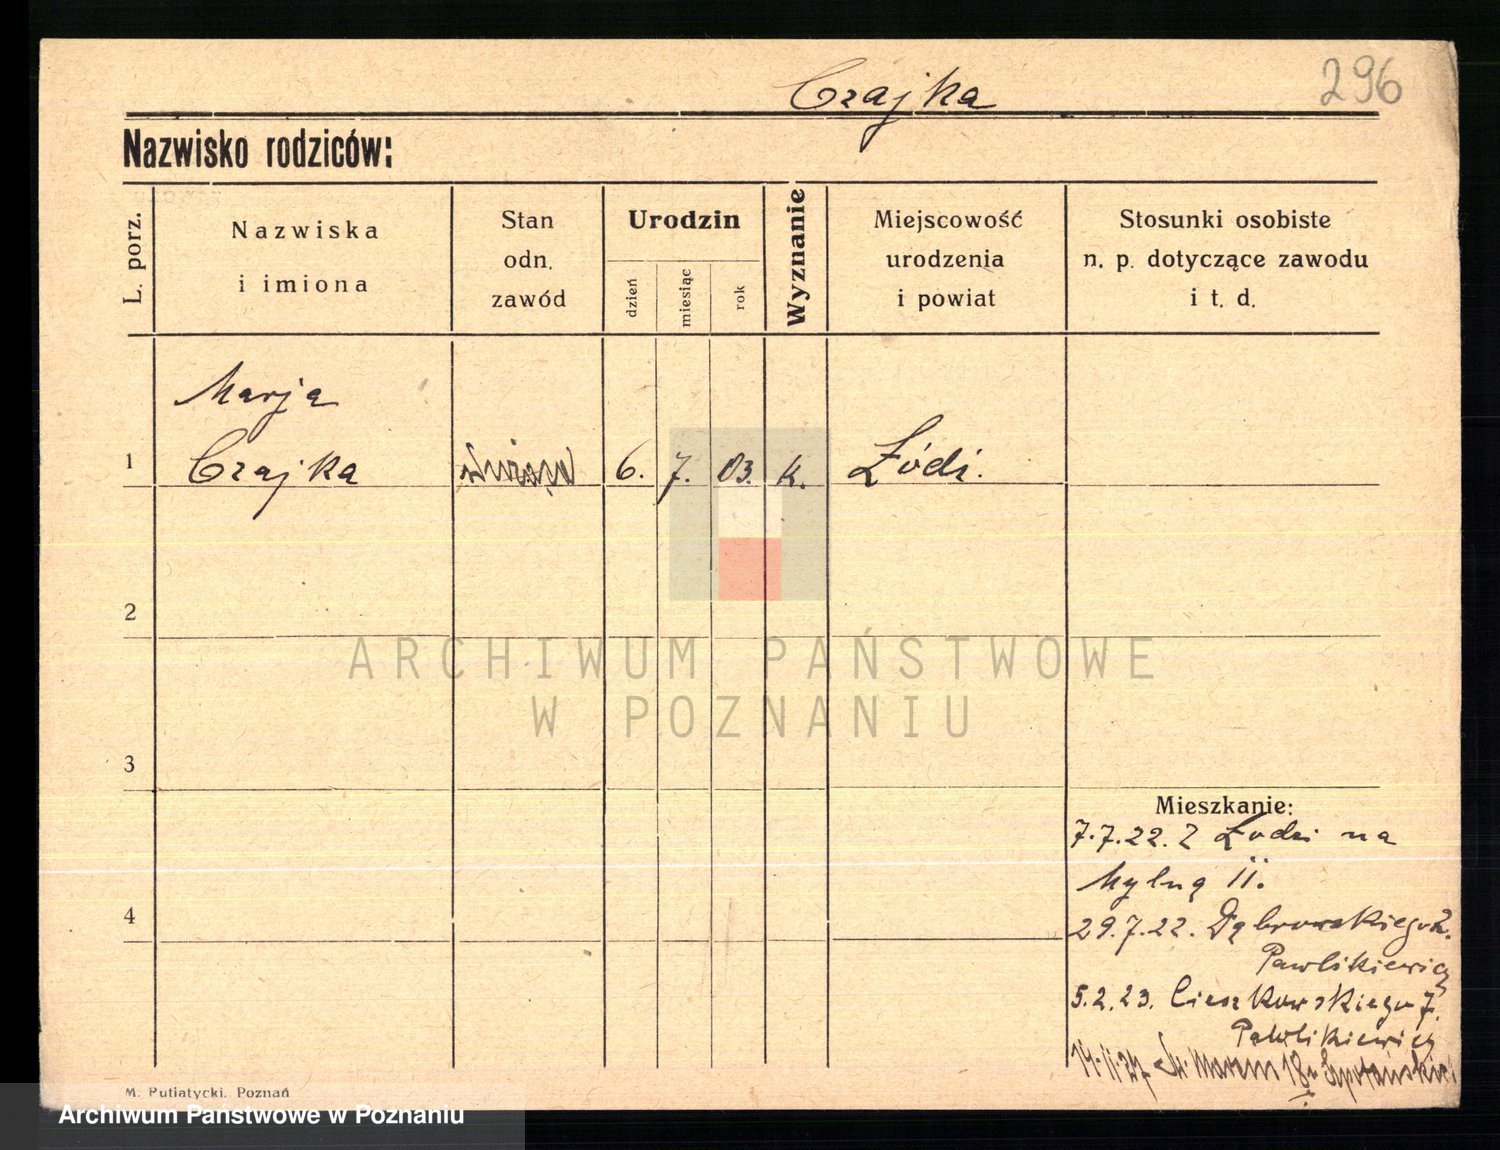 296
Czajka
Nazwisko rodziców:
L. porz.
Nazwiska
i imiona
Stan
odn.
zawód
Urodzin
dzień
miesiąc
rok
Wyznanie
Miejscowość
urodzenia
i powiat
Stosunki osobiste
n. p. dotyczące zawodu
i t. d.
Marja
1 Czajka 6. 7. 03. k. Łódź.
2
ARCHIWUM PAŃSTWOWE
W POZNANIU
3
Mieszkanie:
7.7.22. Z Łodzi na
Mylną 11.
4
29.7.22. Dąbrowskiego
Pawlikiewicz
5.2.23. Cieszkowskiego 7.
Pawlikiewicz
14.11.27 św. Marcin 18
M. Putiatycki. Poznań
Archiwum Państwowe w Poznaniu